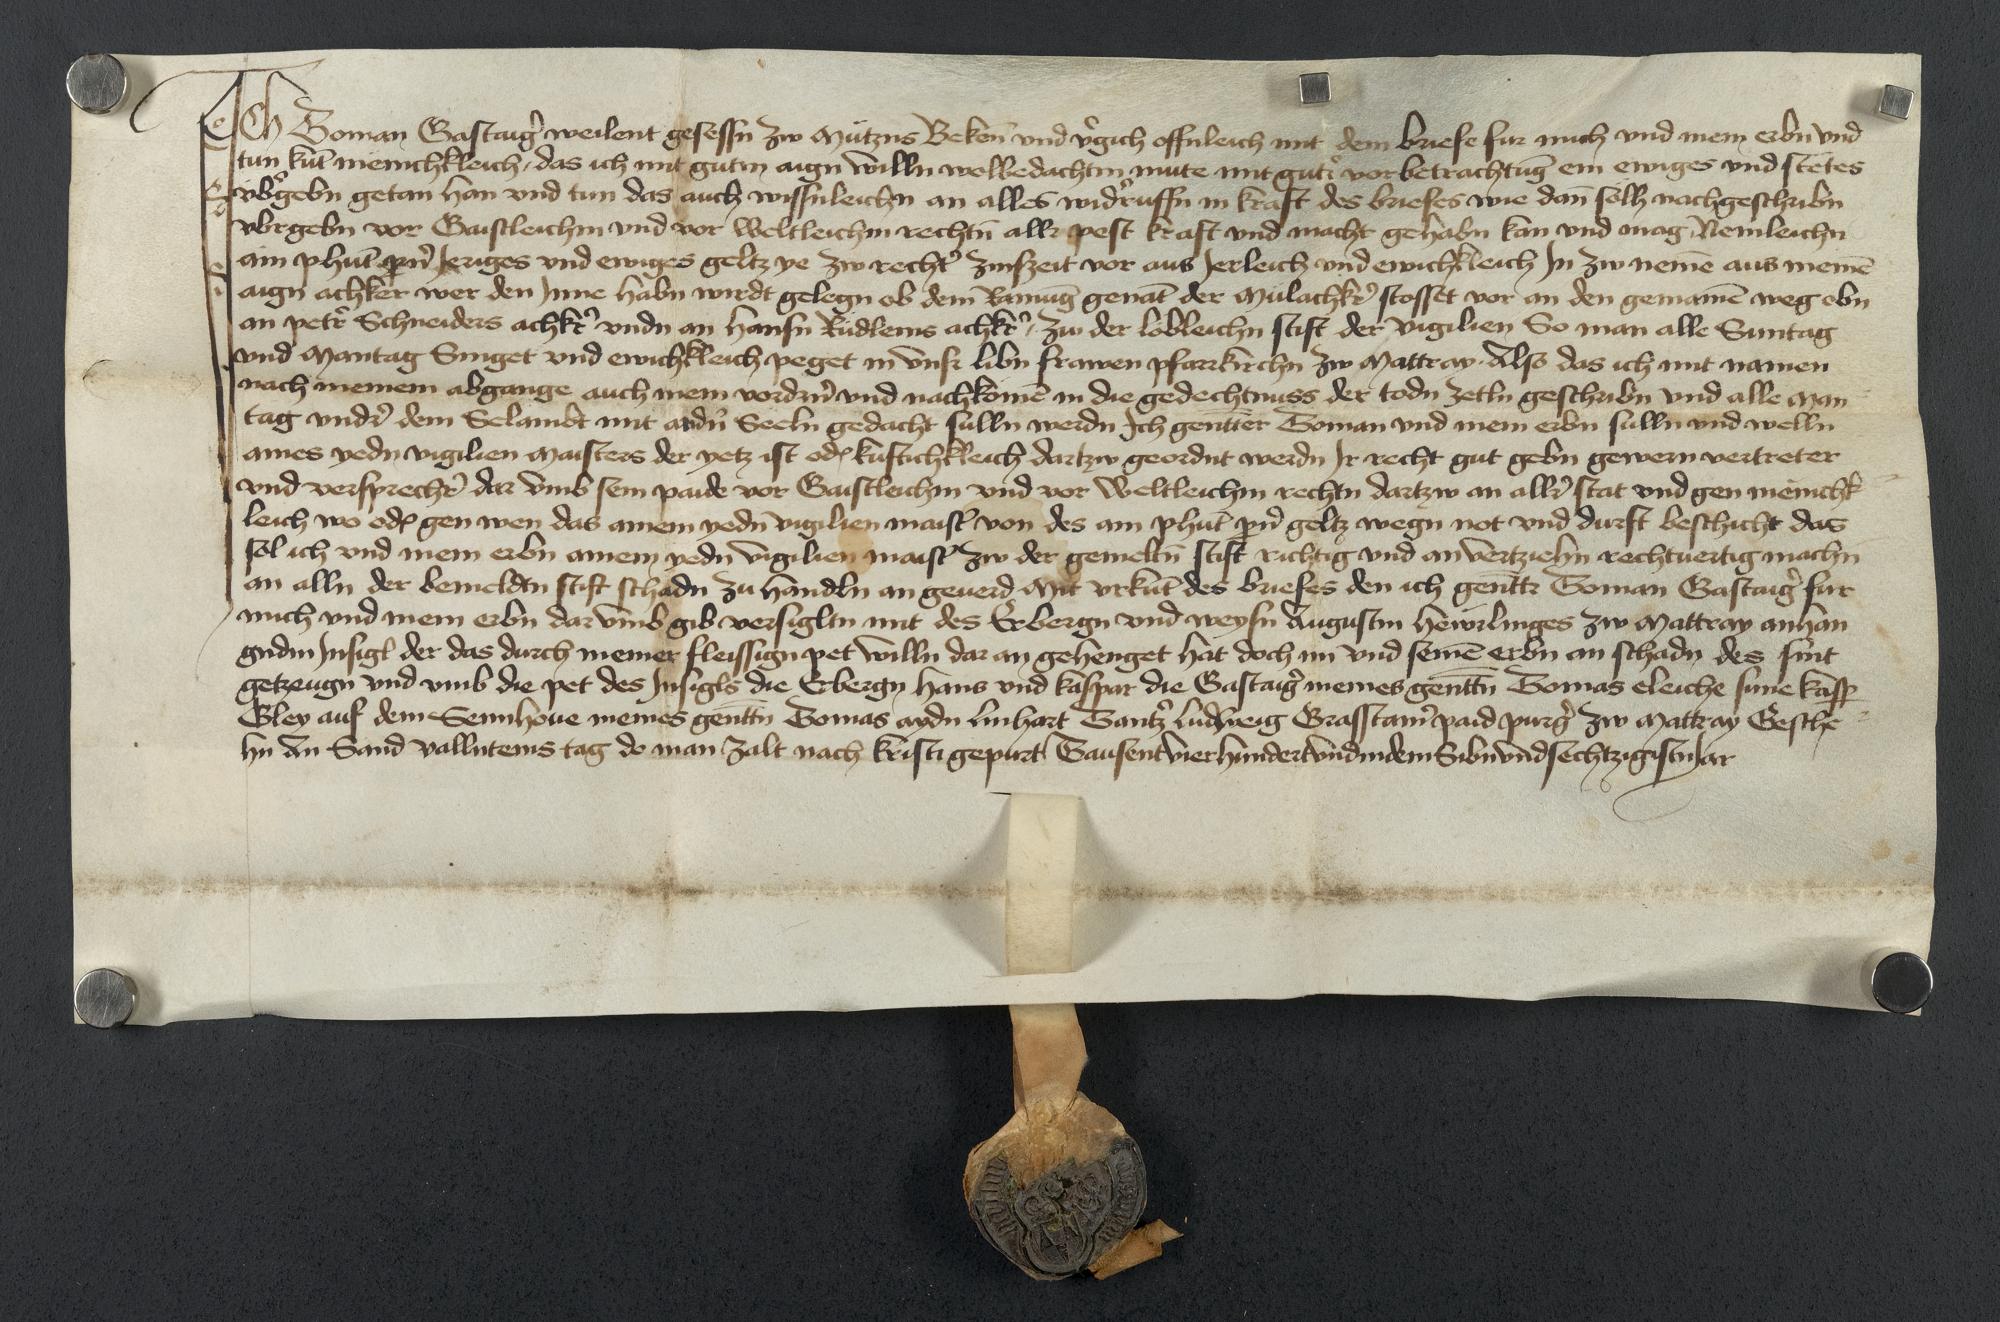 Ich Toman Gastaig' weilent gesessn zw Mützns Beken̄ vnd v'gich offnleich mit dem briefe fur mich vnd mein erbn vnd
tun kūt menichkleich, das ich mit gutm aign willn wolbedachtm mute mit gut' vorbetrachtūg ein ewiges vnd stetes
vb'gebn getan han vnd tun das auch wissnleichn an alles wid'ruffn in kraft des briefes wie dan̄ sölh nachgeschribn
vbrgebn vor Gaistleichm vnd vor Weltleichm rechtn̄ allr pest kraft vnd macht gehabn kan vnd mag Nemleichn
ain phūt pn' Jeriges vnd ewiges geltz ye zw recht' zinszeit vor aus Jerleich vnd ewichkleich Jn zw nemē aus meinē
aign achker wer den Jnne habn wirdt gelegn ob dem genāt der Mülachkr' stosset vor an den gemainē weg obn
an petr' Schneiders achkr' vndn an Hansn Rüdleins achkr', zw der lobleichn stift der vigilien So man alle Suntag
vnd Mantag Singet vnd ewichkleich peget in vnsr libn frawen pfarrkirchn zw Mattray. Also das ich mit namen
nach meinem abgange auch mein vordrn̄ vnd nachkomē in die gedechtnuss der todn zetln geschribn vnd alle Man
tag vndr' dem Selambt mit andn̄ Seeln gedacht sulln werdn Jch gen̄tter Toman vnd mein erbn sulln vnd welln
aines yedn vigilien Maisters der yetz ist od' kūftichkleich dartzw geordnt werdn Jr recht gut gebn gewern vertreter
vnd versprechr' dar vmb sein paide vor Gaistleichm vnd vor Weltleichm rechtn dartzw an allr' stat vnd gen menichk
leich wo od' gen wen das ainem yedn̄ vigilien maist' von des ain phūt pn' geltz wegn not vnd durft beschicht das
sol ich vnd mein erbn ainem yedn̄ vigilien maist' zw der gemeltn̄ stift richtig vnd an vertziehn rechtuertig machn
an alln der bemeldtn stift schadn zu handln an geuerd Mit vrkūt des briefes den ich gen̄ttr Toman Gastaig' fur
mich vnd mein erbn dar vmb gib versigltn mit des Erbergn vnd weysn Augustin Hewrlinges zw Mattray anhan
gndm Jnsigl der das durch meiner fleissign pet willn dar an gehenget hat doch im vnd seinē erbn an schadn des sint
getzeugn vnd vmb die pet des Jnsigls die Erbergn Hans vnd kaspar die Gastaig' meines gen̄ttn Tomas eleiche süne kasp
Gley auf dem Sennhoue meines gen̄ttn Tomas aydn Linhart Tantz' Ludweig Grasstam' paid purg' zw Mattray Gesche
hn An Sand vallnteins tag do man zalt nach kristi gepurt Tausent vier hundert vnd in dem Sibnvndsechtzigistn Jar